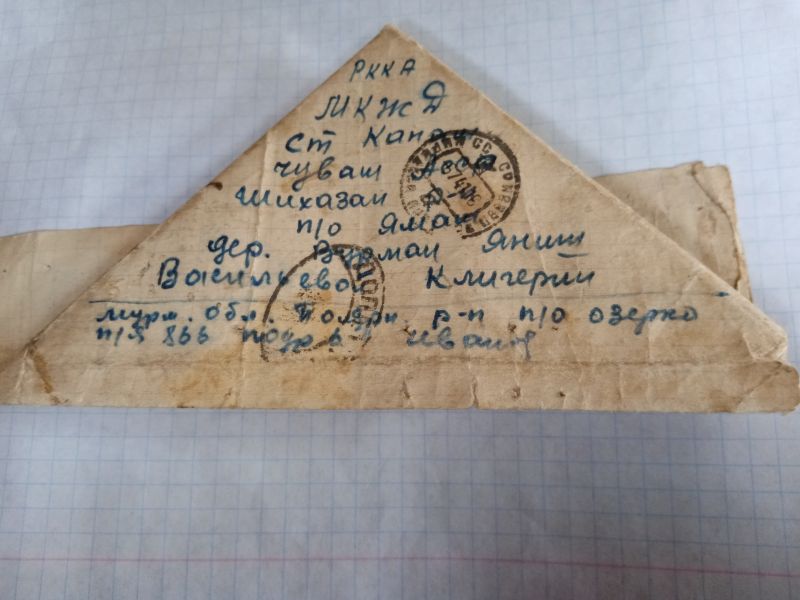 РККА
МКЖД
ст Кана
Чуваш Асср
Шихазан р
п/о Ямаш
дер. Вурман Яниш
Васильева Клигерий
мурм. обл. Полярн р-н п/о озерко
п/я 866 подр Иванов
ДОПЛ